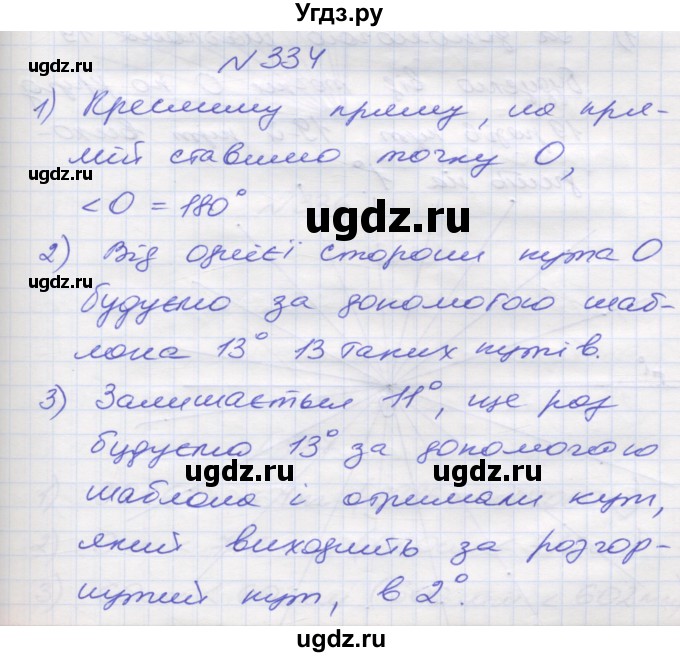 Угдз.ру
№334
ugdz.ru
1) Креслимо пряму, на пря-
мій ставимо точку О,
ugdz.ru
<О = 180°
ugdz.ru
2) Від однієї сторони кута О
ugdz.ru
будуємо за допомогою шаб-
лона 13° 13 таких кутів.
3) Залишається 11°, ще раз
ugdz.ru
будуємо 13° за допомогою
ugdz.ru
ugdz.ru
шаблона і отримали кут,
який виходить за розгор-
нутий кут, в 2°.
ugdz.ru